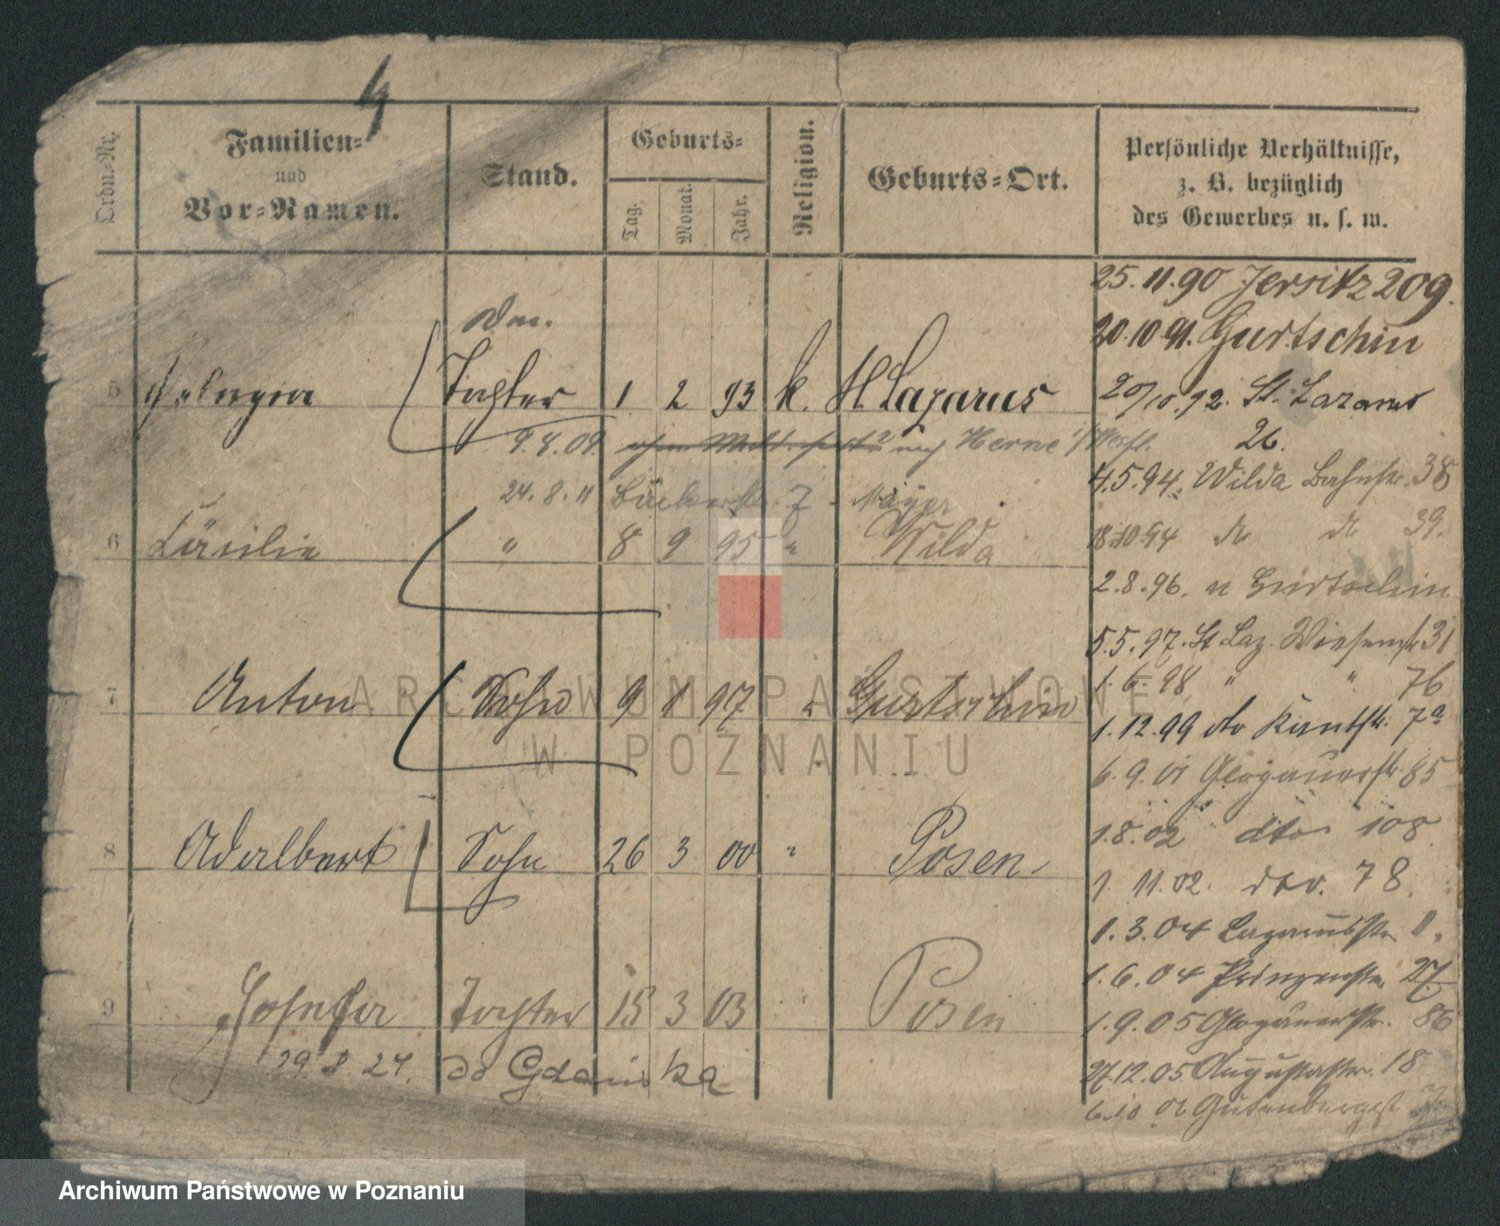 4
Ordn.-Nr.
Familien-
und
Vor-Namen.
Stand.
Geburts-
Tag.
Monat.
Jahr.
Religion.
Geburts-Ort.
Persönliche Verhältnisse,
z. B. bezüglich
des Gewerbes u. s. w.
25.11.90 Jersitz 209.
20.10.91. Gurtschin
5 Pelagia Tochter 1 2 93 k. St Lazarus
20/10.92. St. Lazarus
26.
9.8.09. nach Herne i/Westf.
4.5.94. Wilda Bahnstr. 38
24.8.11 Bäckerstr. 7 - Mayer
18.10.94 do do 39.
6 Cäcilie " 8 9 95 " Wilda
2.8.96. n Gurtschin
5.5.97. St Laz. Wiesenstr 31
1.6.98 " " 76
7 Anton Sohn 9 1 97 " Gurtschin
1.12.99 do Kantstr. 7a
6.9.01 Glogauerstr. 85
1.8.02 dto 108
8 Adalbert Sohn 26 3 00 " Posen
1 11.02. dto. 78.
1.3.04 Lazarusstr. 1.
1.6.04 Prinzenstr. 27
9 Josefa Tochter 15 3 03 " Posen
1.9.05 Glogauerstr. 86
29.8.24. do Gdańska
27.12.05 Augustastr. 18
6.10.06 Gutenbergst
ARCHIWUM PAŃSTWOWE
W POZNANIU
Archiwum Państwowe w Poznaniu